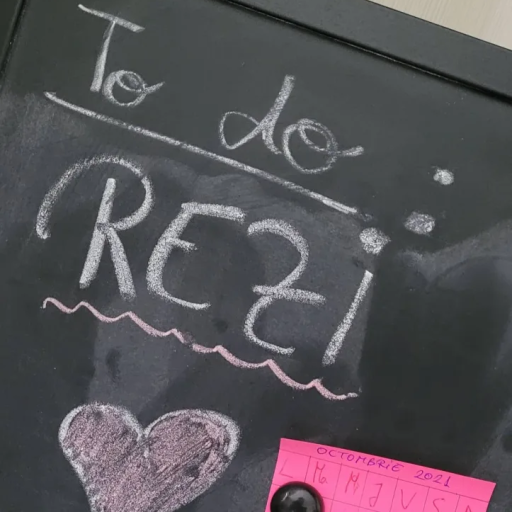 To do:
REZi
OCTOMBRIE 2021
L M M J V S D